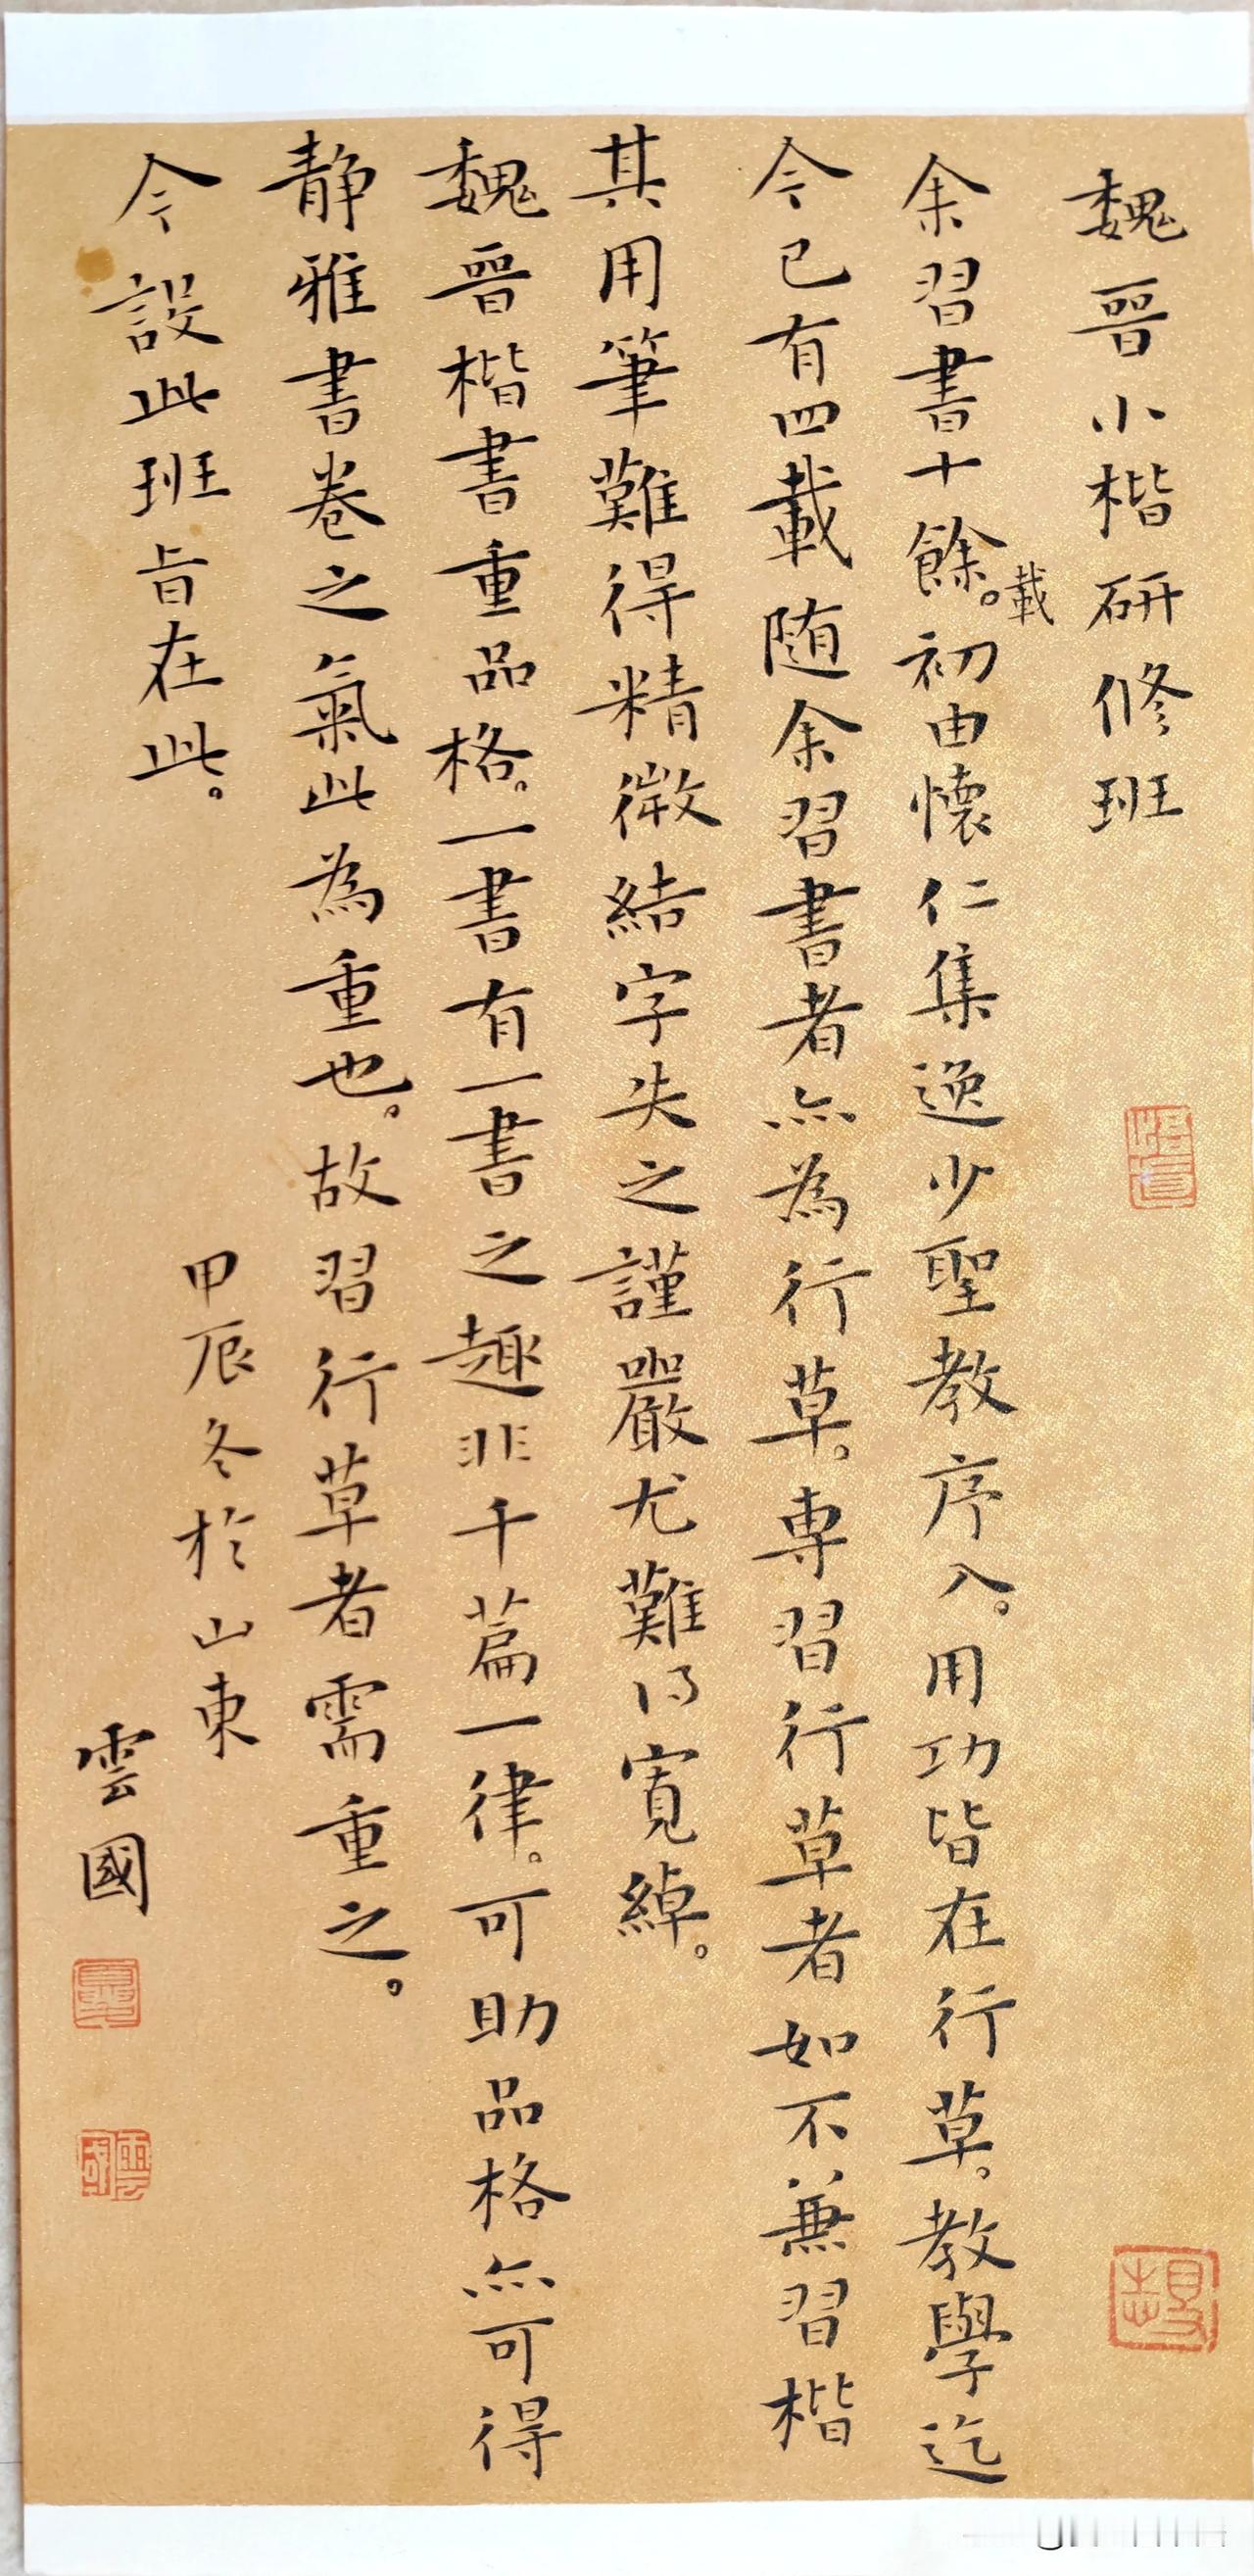 魏晉小楷研修班
余習書十餘載。初由懷仁集逸少聖教序入。用功皆在行草。教學迄
今已有四載随余習書者亦為行草。專習行草者如不兼習楷
其用筆難得精微結字失之謹嚴尤難得寬綽。
魏晉楷書重品格。一書有一書之趣非千篇一律。可助品格亦可得
静雅書卷之氣此為重也。故習行草者需重之。
今設此班旨在此。
甲辰冬於山東
雲國